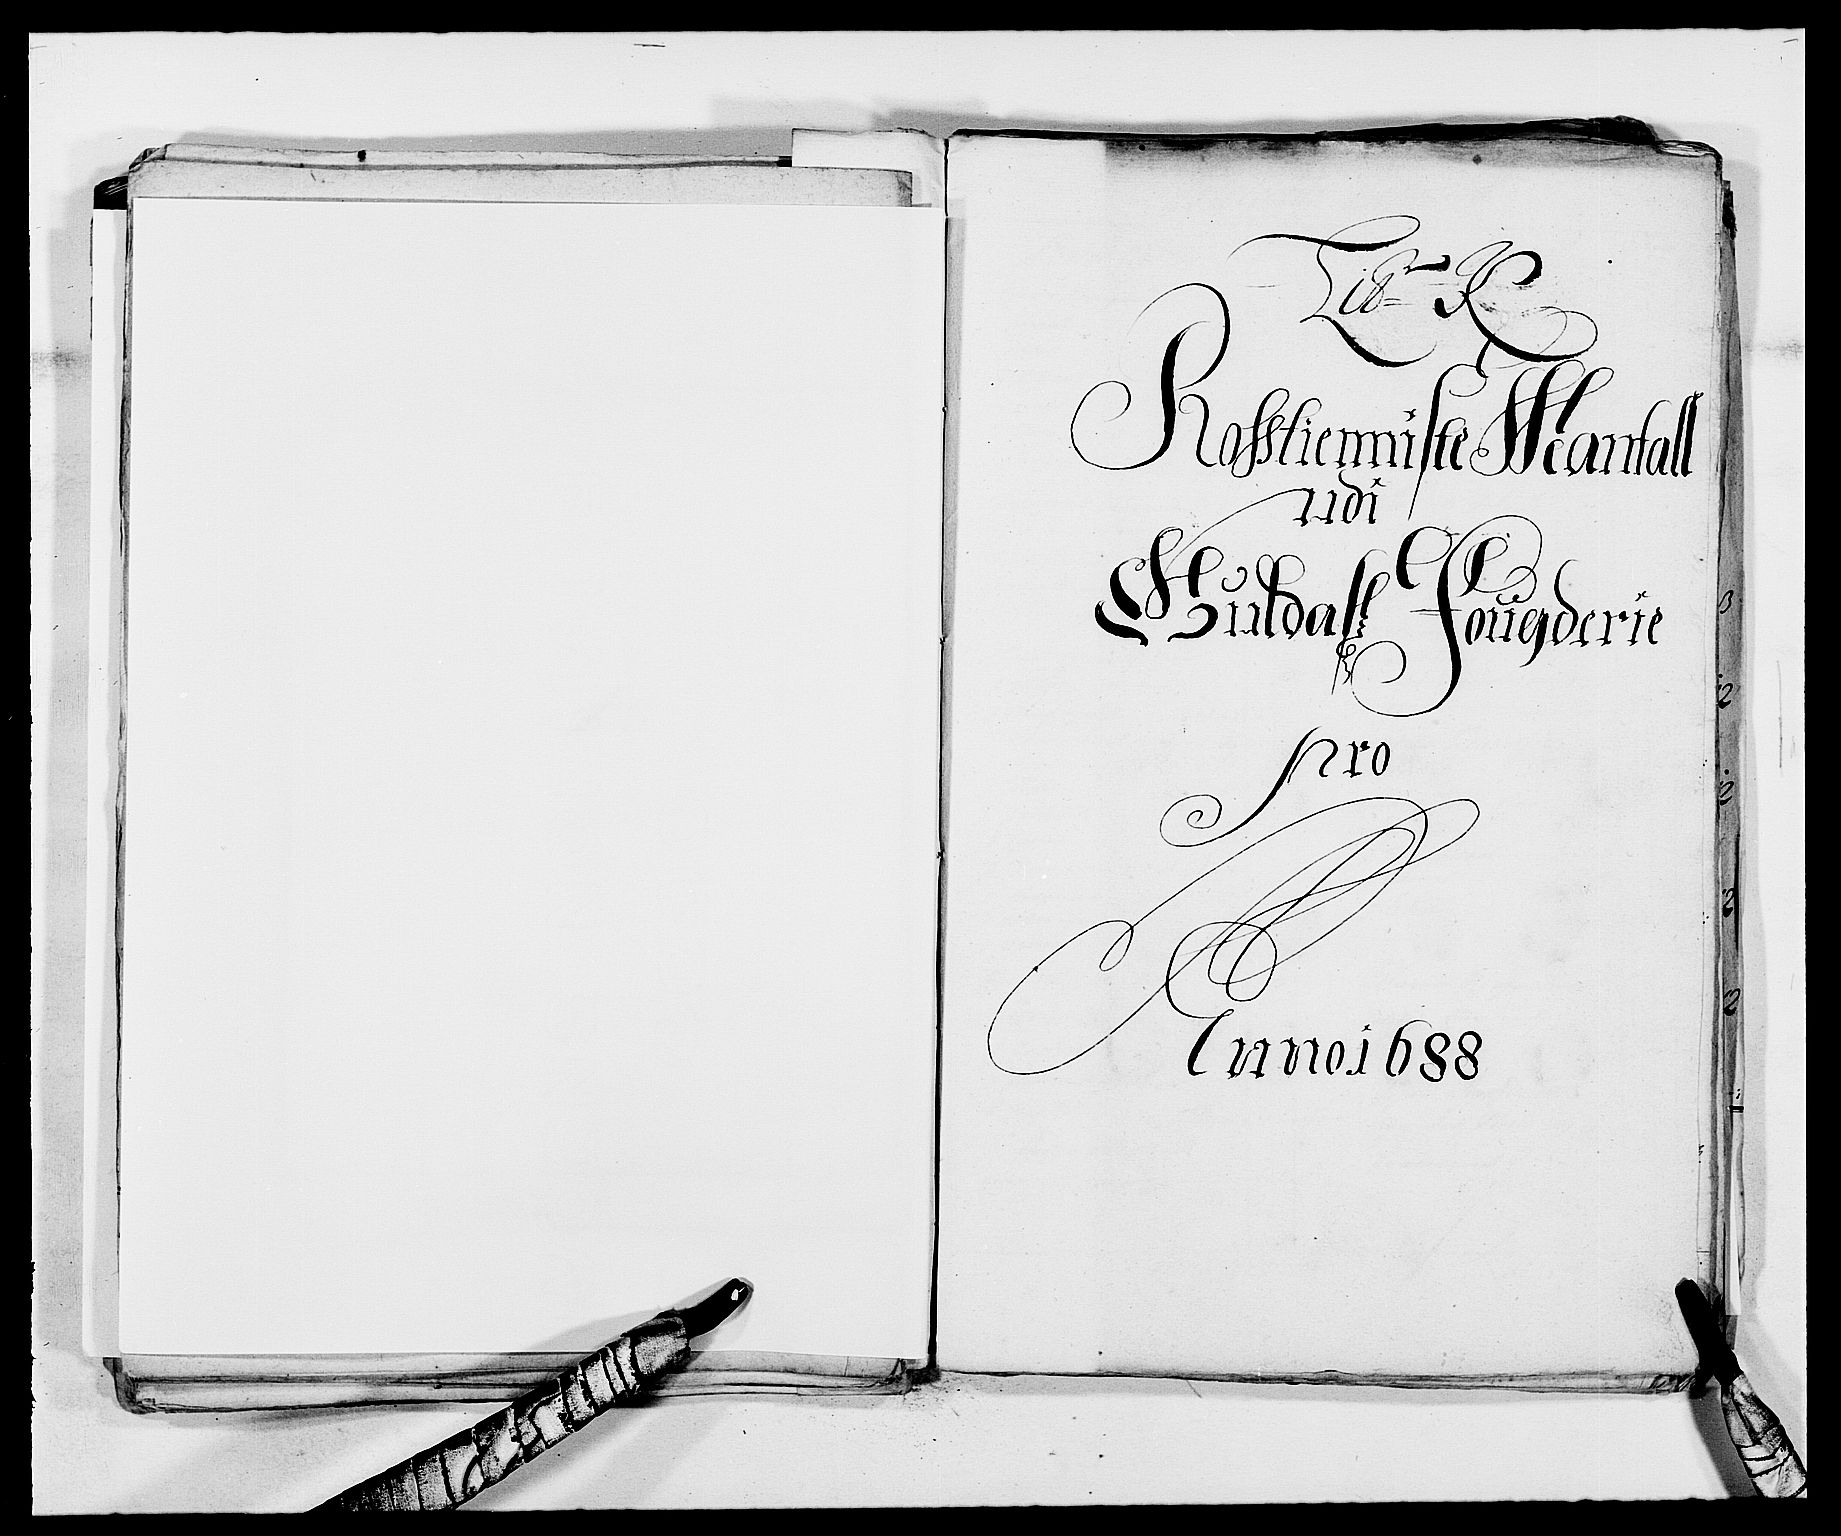 Litr K
Rosstienniste Mantall
udi
Guldals Fougderie
pro
Anno. 1688